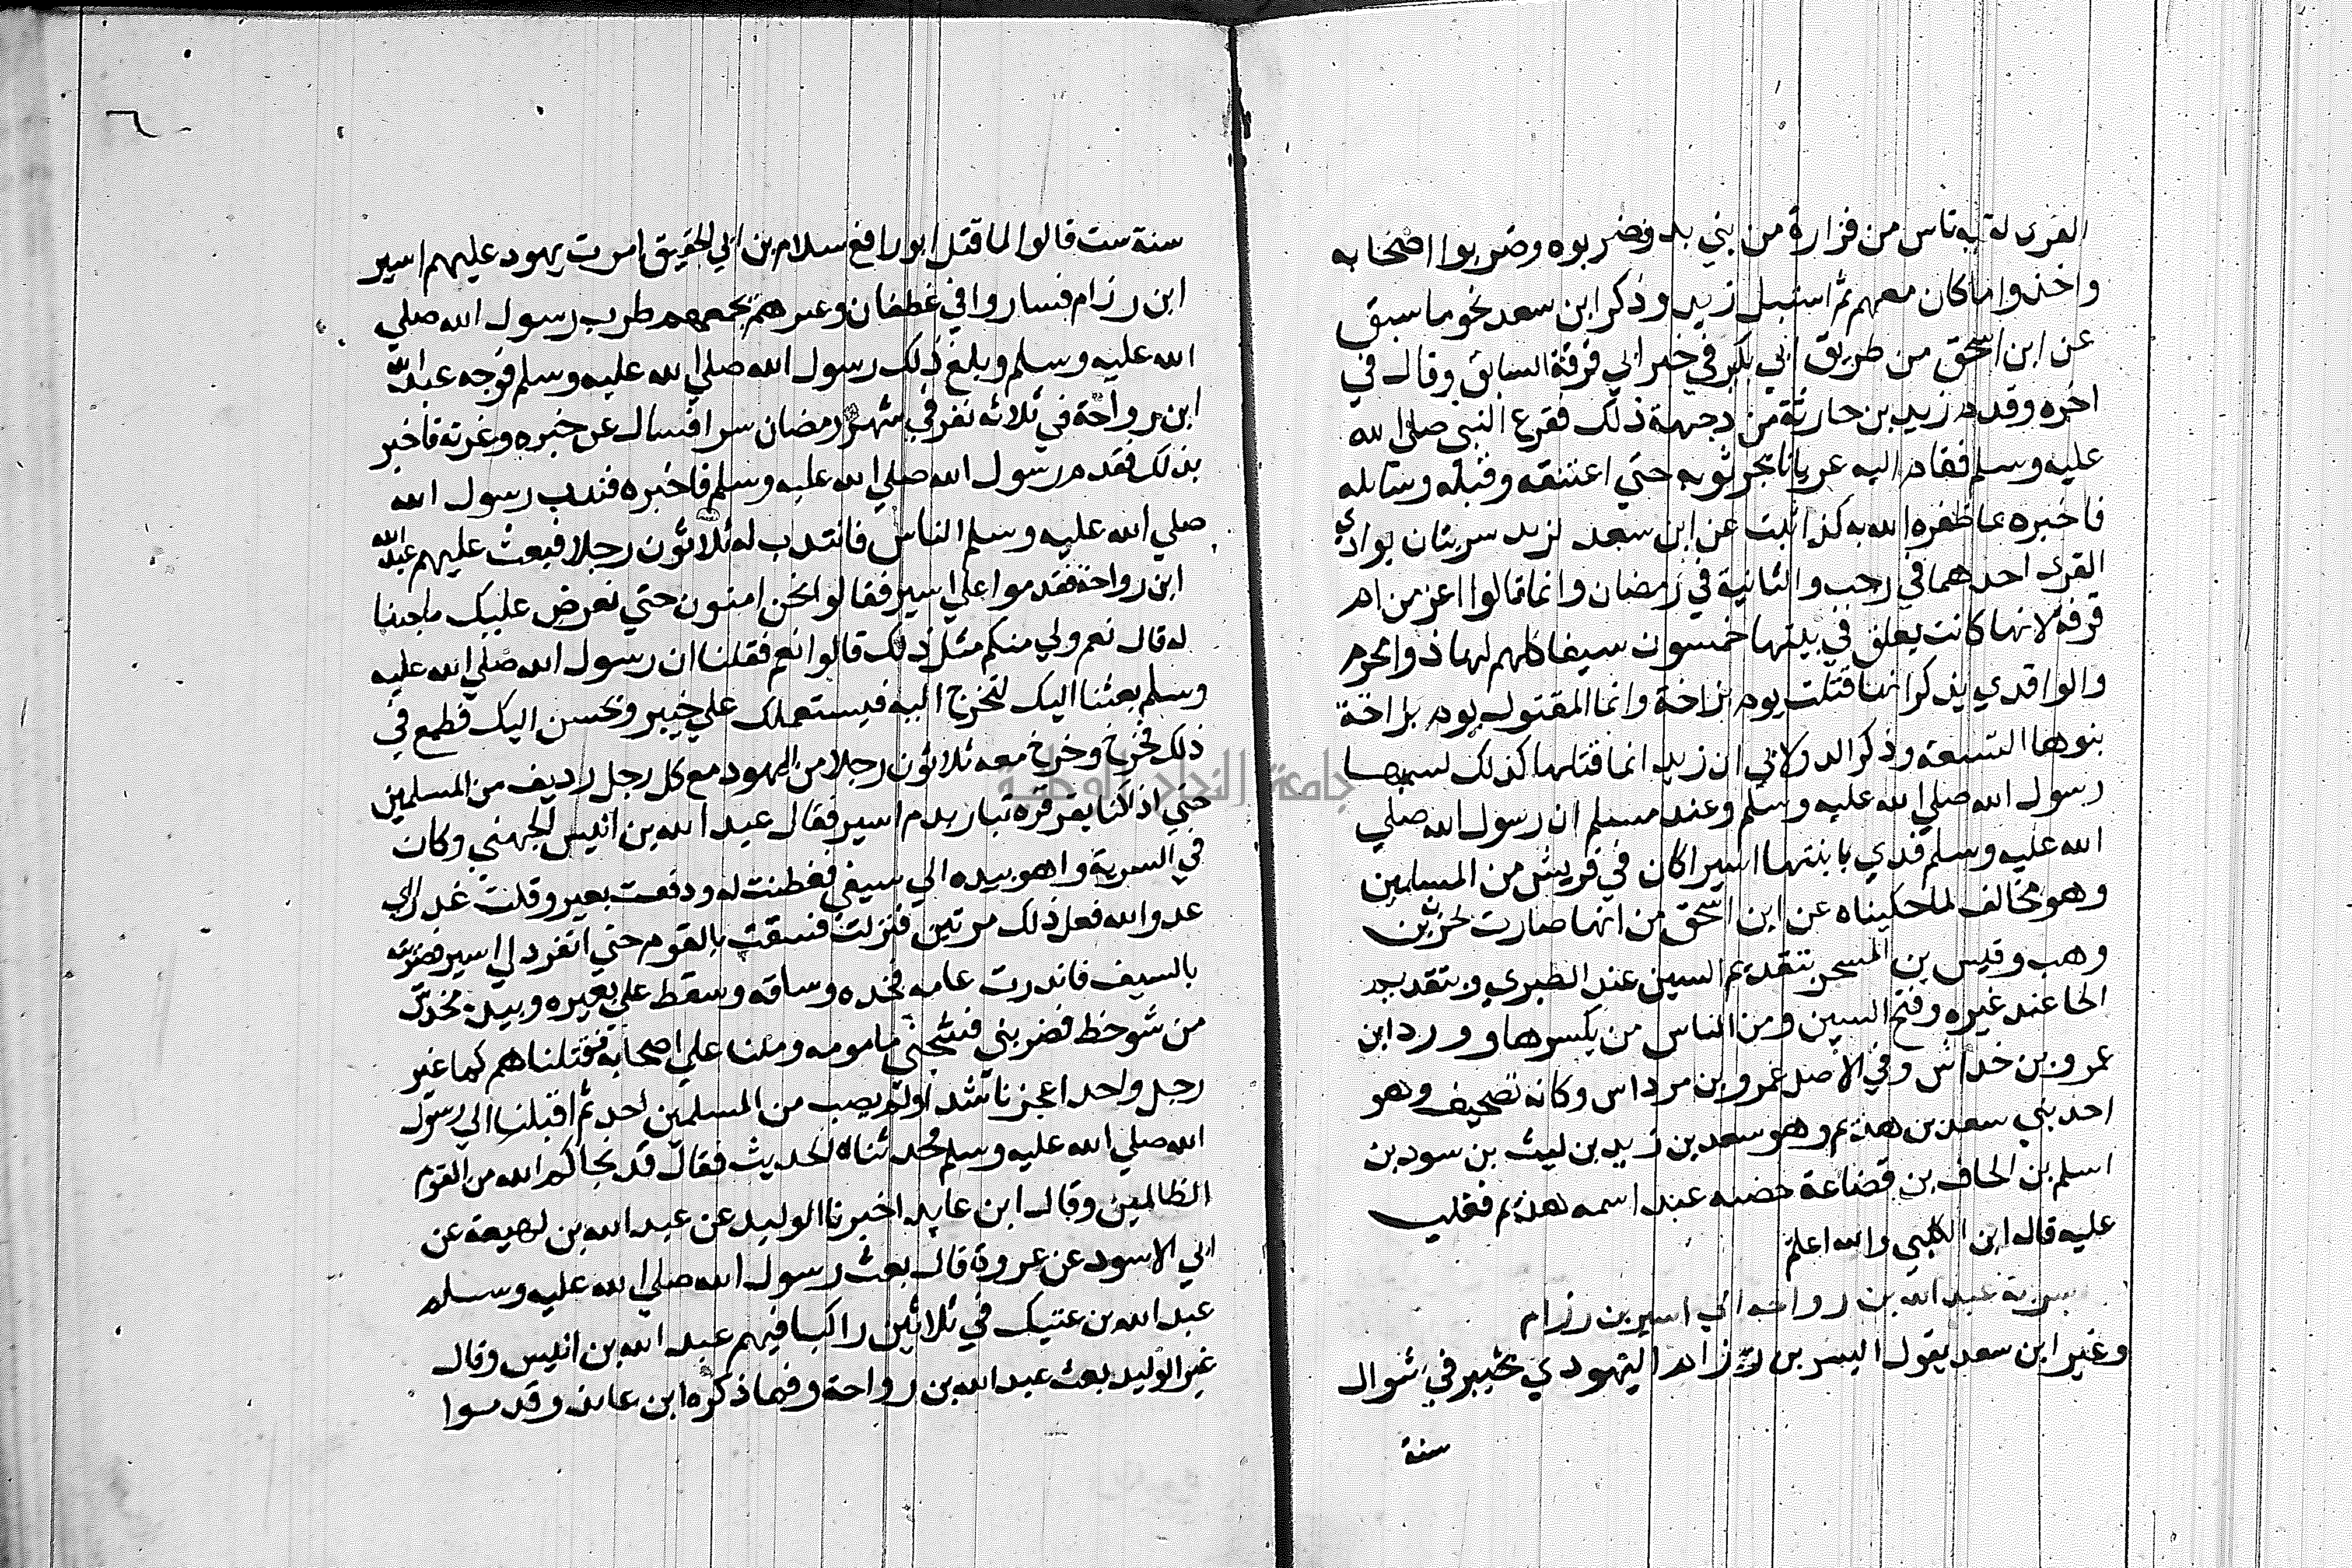 القرى لقيه ناس من فزارة من بني بدر فضربوه وضربوا اصحابه
واخذوا ما كان معهم ثم استبل زيد وذكر ابن سعد نحو ما سبق
عن ابن اسحق من طريق ابي بكر في خبر ابي قرفة السابق وقال في
اخره وقدم زيد بن حارثة من وجهة ذلك فقرع النبي صلي الله
عليه وسلم فقام اليه عريانا يجر ثوبه حتي اعتنقه وقبله وسايله
فاخبره بما ظفره الله به كذا ثبت عن ابن سعد لزيد سريتان بوادي
القرى احدهما في رجب والثانية في رمضان وانما قالوا اعز من ام
قرفة لانها كانت يعلق في بيتها خمسون سيفا كلهم لها ذوا محرم
والواقدي يذكر انها قتلت يوم بزاخة وانما المقتول يوم بزاخة
بنوها التسعة وذكر الدولابي ان زيد انما قتلها كذلك لسبها
رسول الله صلي الله عليه وسلم وعند مسلم ان رسول الله صلي
الله عليه وسلم فدي بابنتها اسيرا كان في قريش من المسلمين
وهو مخالف لما حكيناه عن ابن اسحق من انها صارت لحزن بن
وهب وقيس بن المسحر بتقديم السين عند الطبري وبتقديم
الحا عند غيره وفتح السين ومن الناس من يكسرها وورد ابن
عمرو بن خداش وفي الاصل عمرو بن مرداس وكانه تصحيف وهو
احد بني سعد بن هذيم وهو سعد بن زيد بن ليث بن سود بن
اسلم بن الحاف بن قضاعة حضنه عبد اسمه هذيم فغلب
عليه قاله ابن الكلبي والله اعلم
سرية عبد الله بن رواحه الي اسير بن رزام
وغير ابن سعد يقول اليسر بن رزام اليهودي بخيبر في شوال
سنة
سنة ست قالوا لما قتل ابو رافع سلام بن ابي الحقيق امرت يهود عليهم اسير
ابن رزام فسار وا في غطفان وغيرهم بجمعهم لحرب رسول الله صلي
الله عليه وسلم وبلغ ذلك رسول الله صلي الله عليه وسلم فوجه عبد الله
ابن رواحة في ثلاثه نفر في شهر رمضان سرا فسال عن خبره وغرته فاخبر
بذلك فقدم رسول الله صلي الله عليه وسلم فاخبره فندب رسول الله
صلي الله عليه وسلم الناس فانتدب له ثلاثون رجلا فبعث عليهم عبد الله
ابن رواحة فقدموا علي اسير فقالوا نحن امنون حتي نعرض عليك ما جينا
له قال نعم ولي منكم مثل ذلك قالوا نعم فقلنا ان رسول الله صلي الله عليه
وسلم بعثنا اليك لتخرج اليه فيستعملك علي خيبر ونحسن اليك فطمع في
ذلك فخرج وخرج معه ثلاثون رجلا من اليهود مع كل رجل رديف من المسلمين
حتي اذا كنا بقرقرة ثبار ندم اسير فقال عبد الله بن انيس الجهني وكان
في السرية واهو بيده الي سيفي ففطنت له ودفعت بعيري وقلت غدر اي
عدو الله فعل ذلك مرتين فنزلت فسقت بالقوم حتي انفرد لي اسير فضربته
بالسيف فاندرت عامه فخذه وساقه وسقط علي بعيره وبيده مخدش
من شوحط فضربني فشجني مامومه وملنا علي اصحابه فقتلناهم كلهم غير
رجل واحد اعجزنا شدا ولم يصب من المسلمين احد ثم اقبلنا الي رسول
الله صلي الله عليه وسلم فحدثناه الحديث فقال قد نجاكم الله من القوم
الظالمين وقال ابن عايد اخبرنا الوليد عن عبد الله بن لهيعة عن
ابي الاسود عن عروة قال بعث رسول الله صلي الله عليه وسلم
عبد الله بن عتيك في ثلاثين راكبا فيهم عبد الله بن انيس وقال
غير الوليد بعث عبد الله بن رواحة وفيما ذكره ابن عائذ وقدموا